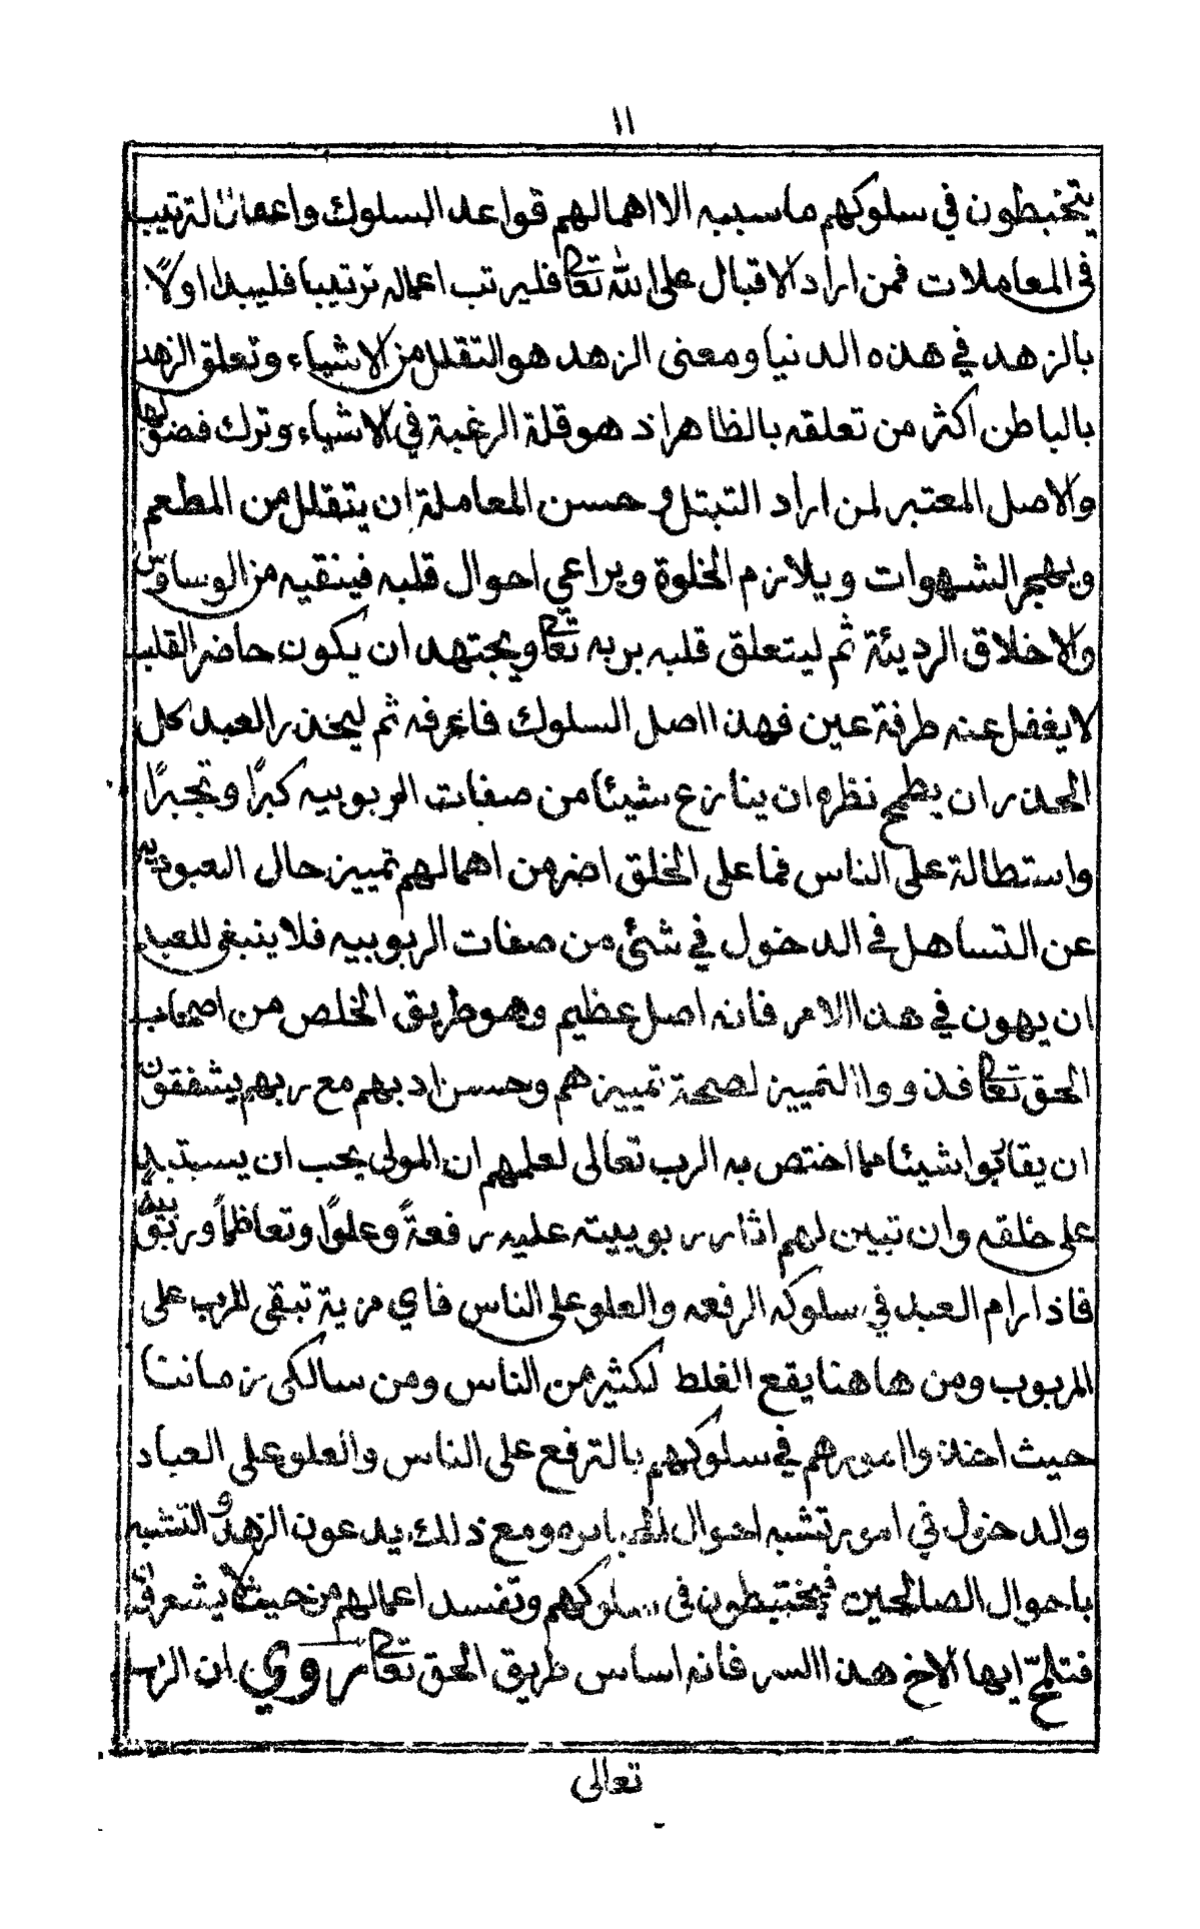 ١١
يتخبطون في سلوكهم ما سببه الا اهمالهم قواعد السلوك واعمال ترتيب
فى المعاملات فمن اراد الاقبال على الله تعالى فليرتب اعماله ترتيبا فليبدا اولًا
بالزهد في هذه الدنيا ومعنى الزهد هو التقلل من الاشياء وتعلق الزهد
بالباطن اكثر من تعلقه بالظاهر اذ هو قلة الرغبة في الاشياء وترك فضولها
والاصل المعتبر لمن اراد التبتل و حسن المعاملة ان يتقلل من المطعم
ويهجر الشهوات ويلازم الخلوة ويراعي احوال قلبه فينقيه من الوساوس
والاخلاق الرديئة ثم ليتعلق قلبه بربه تعالى ويجتهد ان يكون حاضر القلب
لا يغفل عنه طرفة عين فهذا اصل السلوك فاعرفه ثم ليحذر العبد كل
الحذر ان يطمح نظره ان ينازع شيئا من صفات الربوبيه كبرًا وتجبرًا
واستطالة على الناس فما على الخلق اضر من اهمالهم تمييز حال العبوديه
عن التساهل في الدخول في شئ من صفات الربوبيه فلا ينبغي للعبد
ان يهون في هذا الامر فانه اصل عظيم وهو طريق الخلص من اصحاب
الحق تعالى فذووا التمييز لصحة تمييزهم وحسن ادبهم مع ربهم يشفقون
ان يقاربوا شيئا مما اختص به الرب تعالى لعلمهم ان المولى يحب ان يستبد به
على خلقه وان تبين لهم اثار ربوبيته عليه رفعةً وعلوًا وتعاظمًا وربوبية
فاذا رام العبد في سلوكه الرفعه والعلو على الناس فاي مزية تبقى للرب على
المربوب ومن هاهنا يقع الغلط لكثير من الناس ومن سالكى زماننا
حيث اخذوا امورهم في سلوكهم بالترفع على الناس والعلو على العباد
والدخول في امور تشبه احوال الجبابره ومع ذلك يدعون الزهد و التشبه
باحوال الصالحين فيختبطون في سلوكهم وتفسد اعمالهم من حيث لا يشعرون
فتلمح ايها الاخ هذا السر فانه اساس طريق الحق تعالى روي ان الرب
تعالى